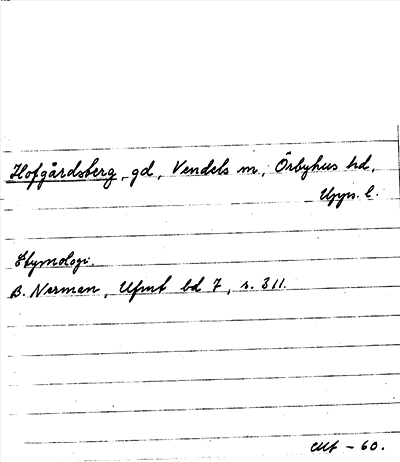 Hofgårdsberg, gd, Vendels sn, Örbyhus hd,
Upps. l.
Etymologi.
B. Nerman, Ufmt bd 7, s. 311.
– 60.